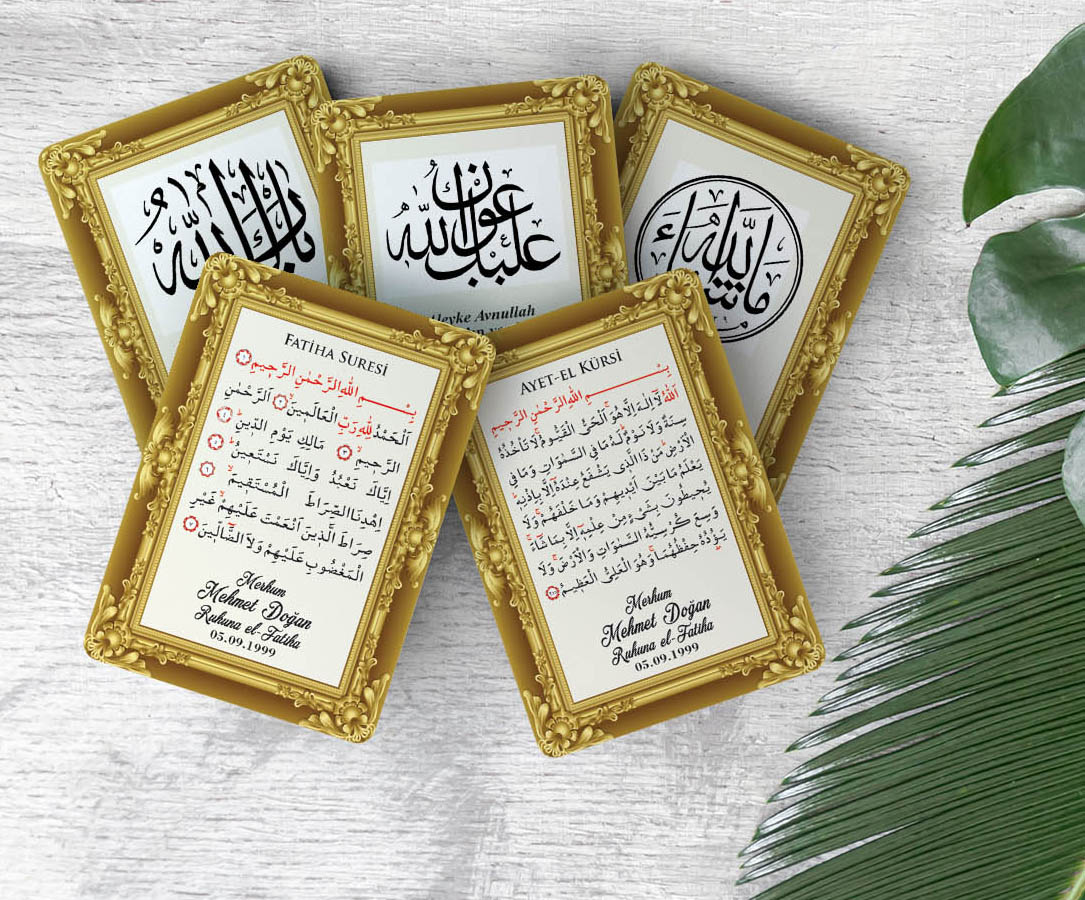 بارك الله
عليك عون الله
Aleyke Avnullah
ما شاء الله
FATİHA SURESİ
بِسْمِ اللهِ الرَّحْمٰنِ الرَّحِيمِ ١
اَلْحَمْدُ لِلّٰهِ رَبِّ الْعَالَمِينَ ٢ اَلرَّحْمٰنِ
الرَّحِيمِ ٣ مَالِكِ يَوْمِ الدِّينِ ٤
اِيَّاكَ نَعْبُدُ وَاِيَّاكَ نَسْتَعِينُ ٥
اِهْدِنَا الصِّرَاطَ الْمُسْتَقِيمَ ٦
صِرَاطَ الَّذِينَ اَنْعَمْتَ عَلَيْهِمْ غَيْرِ
الْمَغْضُوبِ عَلَيْهِمْ وَلَا الضَّالِّينَ ٧
Merhum
Mehmet Doğan
Ruhuna el-Fatiha
05.09.1999
AYET-EL KÜRSİ
بِسْمِ اللهِ الرَّحْمٰنِ الرَّحِيمِ
اَللّٰهُ لَا اِلٰهَ اِلَّا هُوَ اَلْحَيُّ الْقَيُّومُ لَا تَأْخُذُهُ
سِنَةٌ وَلَا نَوْمٌ لَهُ مَا فِي السَّمٰوَاتِ وَمَا فِي
الْاَرْضِ مَنْ ذَا الَّذِي يَشْفَعُ عِنْدَهُ اِلَّا بِاِذْنِهِ
يَعْلَمُ مَا بَيْنَ اَيْدِيهِمْ وَمَا خَلْفَهُمْ وَلَا
يُحِيطُونَ بِشَيْءٍ مِنْ عِلْمِهِ اِلَّا بِمَا شَاءَ
وَسِعَ كُرْسِيُّهُ السَّمٰوَاتِ وَالْاَرْضَ وَلَا
يَؤُدُهُ حِفْظُهُمَا وَهُوَ الْعَلِيُّ الْعَظِيمُ
Merhum
Mehmet Doğan
Ruhuna el-Fatiha
05.09.1999